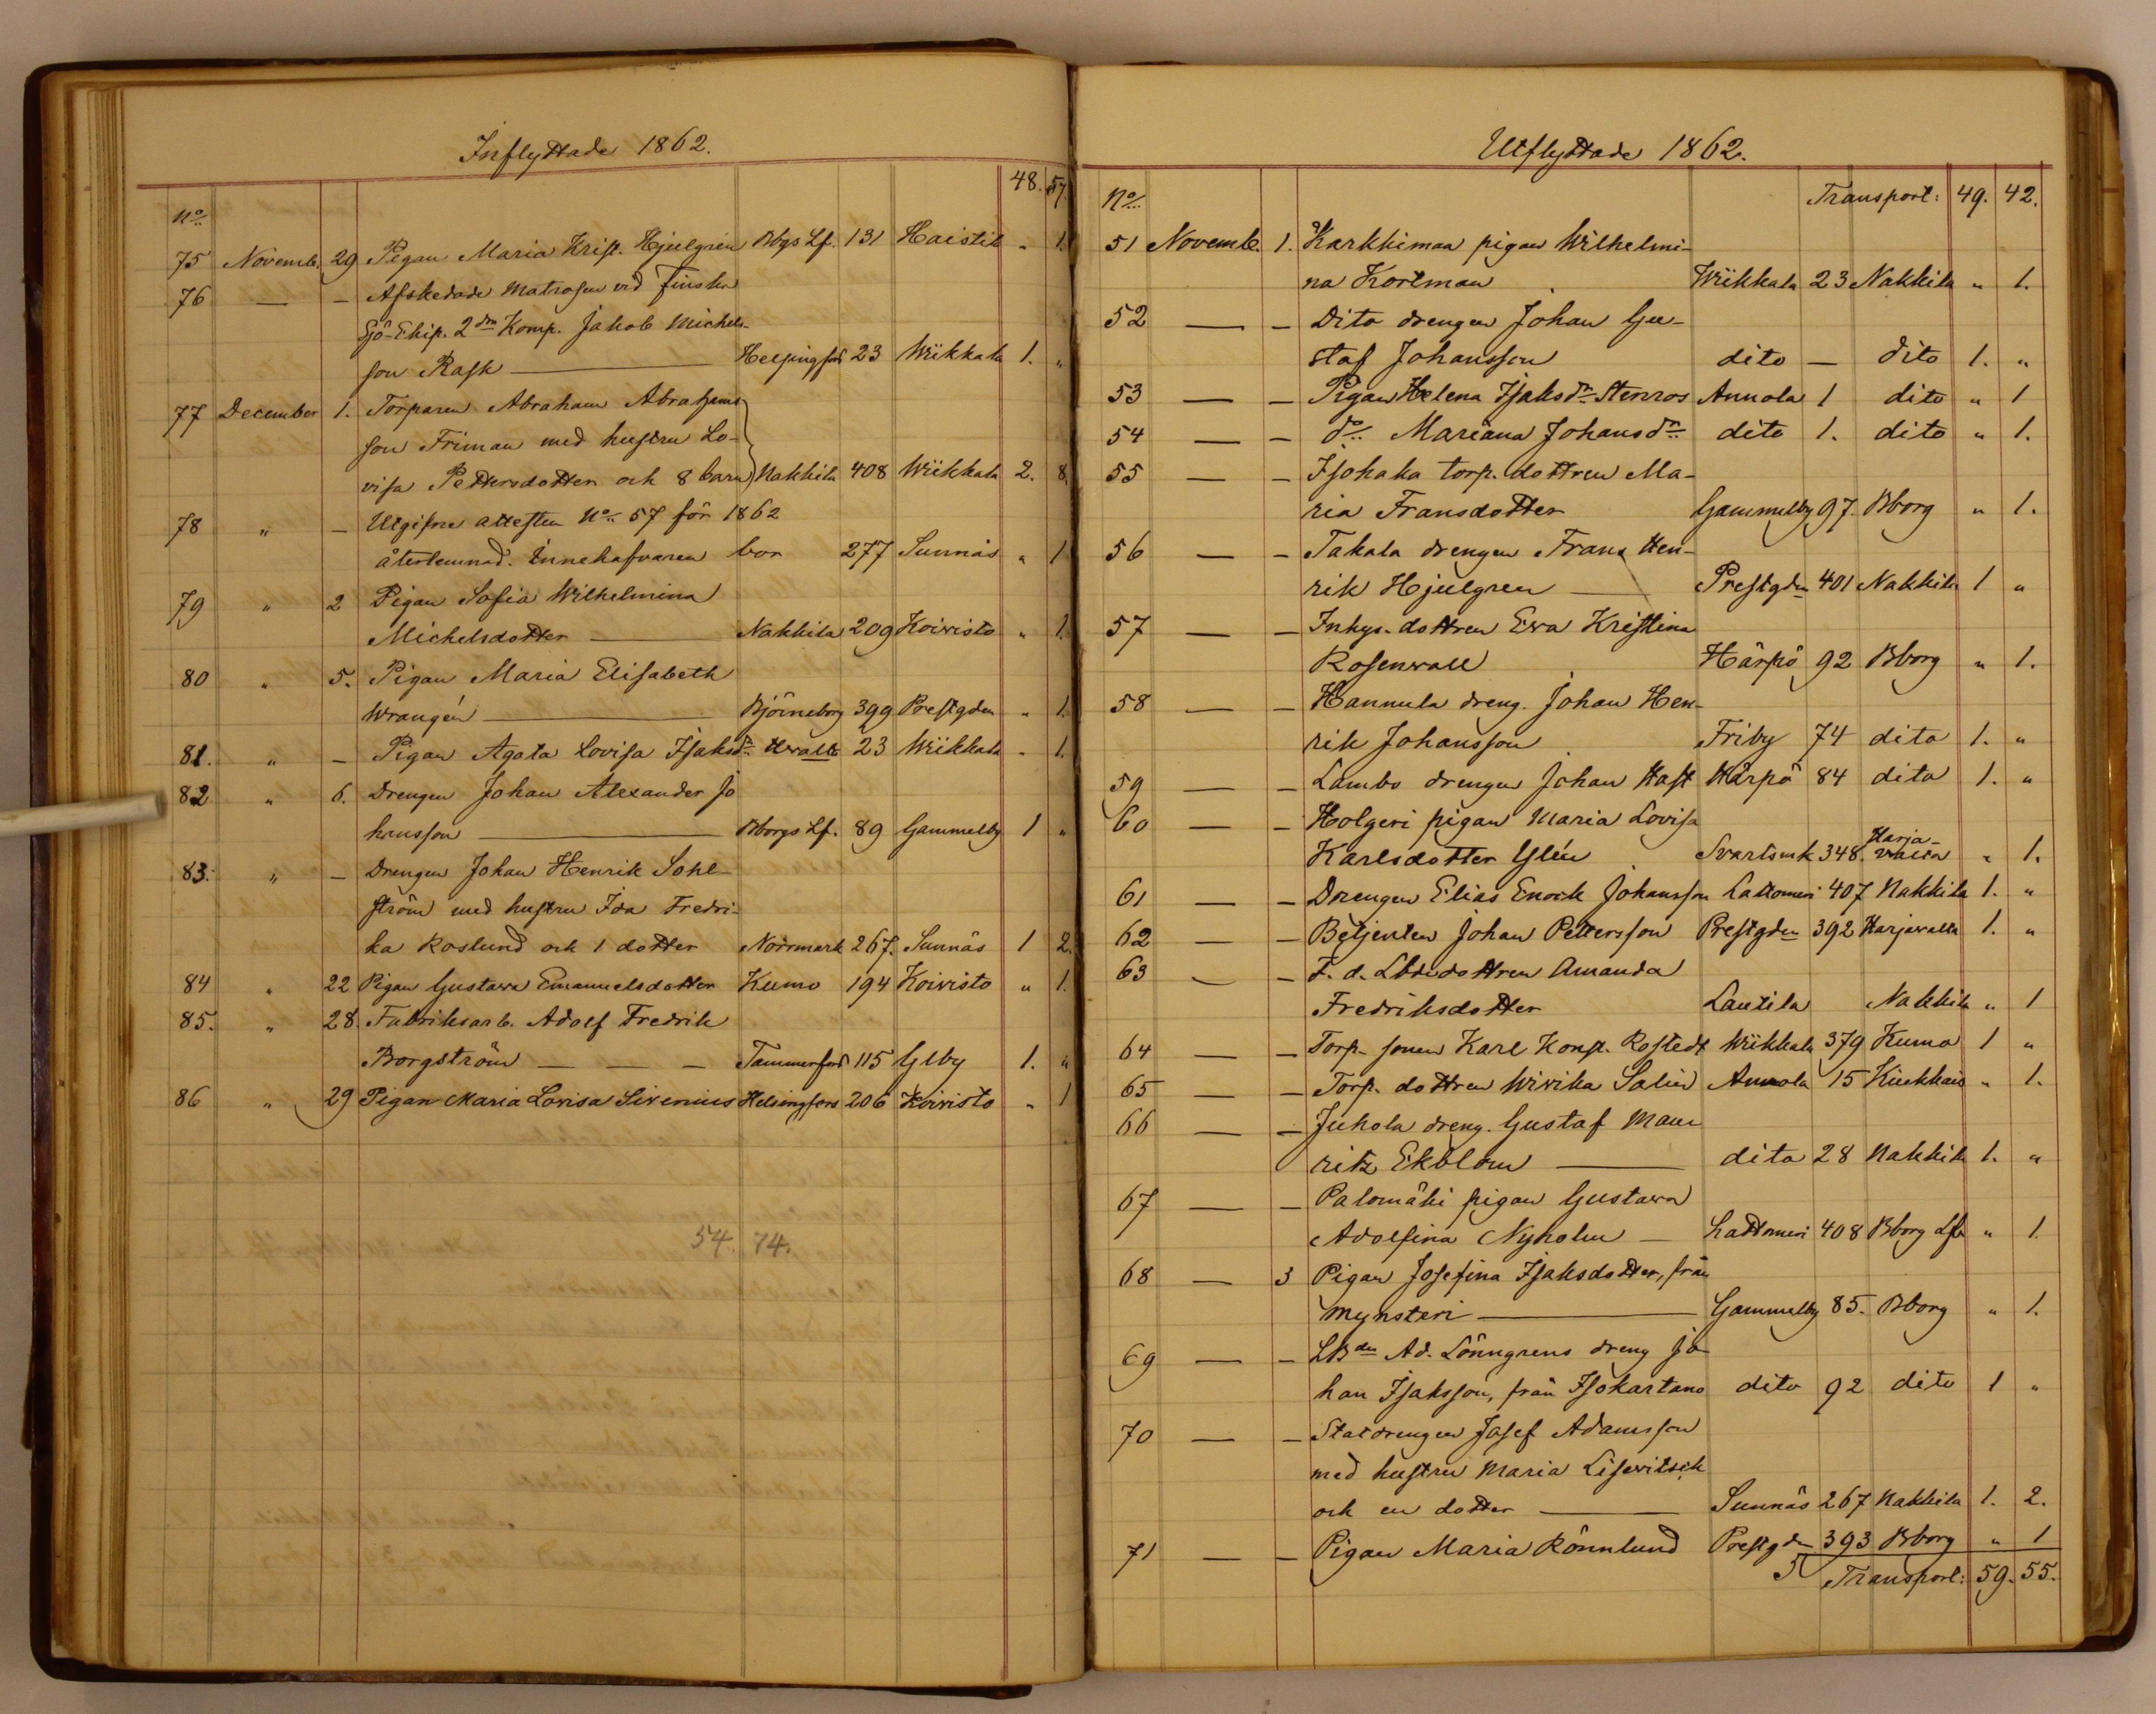 Inflyttade 1862.
48. 57.
No
75 Novemb. 29 Pigan Maria Krist. Hjulgrén Bbgs Lf. 131 Haistila „ 1.
76 — — Afskedade Matrosen vid Finska
Sjö-Ekip. 2dra Komp. Jakob Michels-
son Rask — Helsingfors 23 Wiikkala 1. „
77 December 1. Torparen Abraham Abrahams-
son Friman med hustru Lo-
visa Pettersdotter och 8 barn Nakkila 408 Wiikkala 2. 8.
78 „ — Utgifne attesten No 57 för 1862
återlemnad. Innehafvaren bor 277 Sunnäs „ 1
79 „ 2 Pigan Sofia Wilhelmina
Michelsdotter — Nakkila 209 Koivisto „ 1.
80 „ 5. Pigan Maria Elisabeth
Wrangén — Björneborg 399 Prestgden „ 1.
81. „ — Pigan Agata Lovisa Isaksdr 23 Wiikkala „ 1.
82 „ 6. Drengen Johan Alexander Jo
hansson — Bborgs Lf. 89 Gammelby 1 „
83. „ — Drengen Johan Henrik Sohl-
ström med hustru Ida Fredri-
ka Roslund och 1 dotter Norrmark 267. Sunnäs 1 2.
84 „ 22 Pigan Gustava Emanuelsdotter Kumo 194 Koivisto „ 1.
85. „ 28. Fabriksarb. Adolf Fredrik
Borgström — — — Tammerfors 115 Glby 1. „
86 „ 29 Pigan Maria Lovisa Sirenius Helsingfors 206 Koivisto „ 1
54. 74.
Utflyttade 1862.
No Transport: 49. 42.
51 Novemb. 1. Karkkimaa pigan Wilhelmi-
na Kortman Wiikkala 23 Nakkila „ 1.
52 — — Dito drengen Johan Gu-
staf Johansson dito — dito 1. „
53 — — Pigan Helena Isaksdr Stenros Annola 1 dito „ 1
54 — — do Mariana Johansdr dito 1. dito „ 1.
55 — — Isohaka torp. dottren Ma-
ria Fransdotter Gammelby 97. Bborg „ 1.
56 — — Takala drengen Frans Hen-
rik Hjulgren — Prestgdn 401 Nakkila 1 „
57 — — Inhys. dottren Eva Kristina
Rosenwall Härpö 92 Bborg „ 1.
58 — — Hannula dreng. Johan Hen-
rik Johansson Friby 74 dito 1. „
59 — — Lambo drengen Johan Hast Härpö 84 dito 1. „
60 — — Holgeri pigan Maria Lovisa
Karlsdotter Glén Svartsmk 348. Harja-
valta „ 1.
61 — — Drengen Elias Enock Johansson Lattomeri 407 Nakkila 1. „
62 — — Betjenten Johan Pettersson Prestgden 392 Harjavalta 1. „
63 — — F. d. Lbdedottren Amanda
Fredriksdotter Lautila Nakkila „ 1
64 — — Torp. sonen Karl Konst. Rostedt Wiikkala 379 Kumo 1 „
65 — — Torp. dottren Wivika Salin Annola 15 Kiukkais „ 1.
66 — — Juhola dreng. Gustaf Mau
ritz Ekblom — dito 28 Nakkila 1. „
67 — — Palomäki pigan Gustava
Adolfina Nyholm — Lattomeri 408 Bborg Lfs „ 1.
68 — 3 Pigan Josefina Isaksdotter, från
Mynsteri — Gammelby 85. Bborg „ 1.
69 — — LBden Ad. Lönngrens dreng Jo
han Isaksson, från Isokartano dito 92 dito 1 „
70 — — Statdrengen Josef Adamsson
med hustru Maria Lisewitsch
och en dotter — Sunnäs 267 Nakkila 1. 2.
71 — — Pigan Maria Rönnlund Prestgdn 393 Bborg „ 1
Transport: 59. 55.